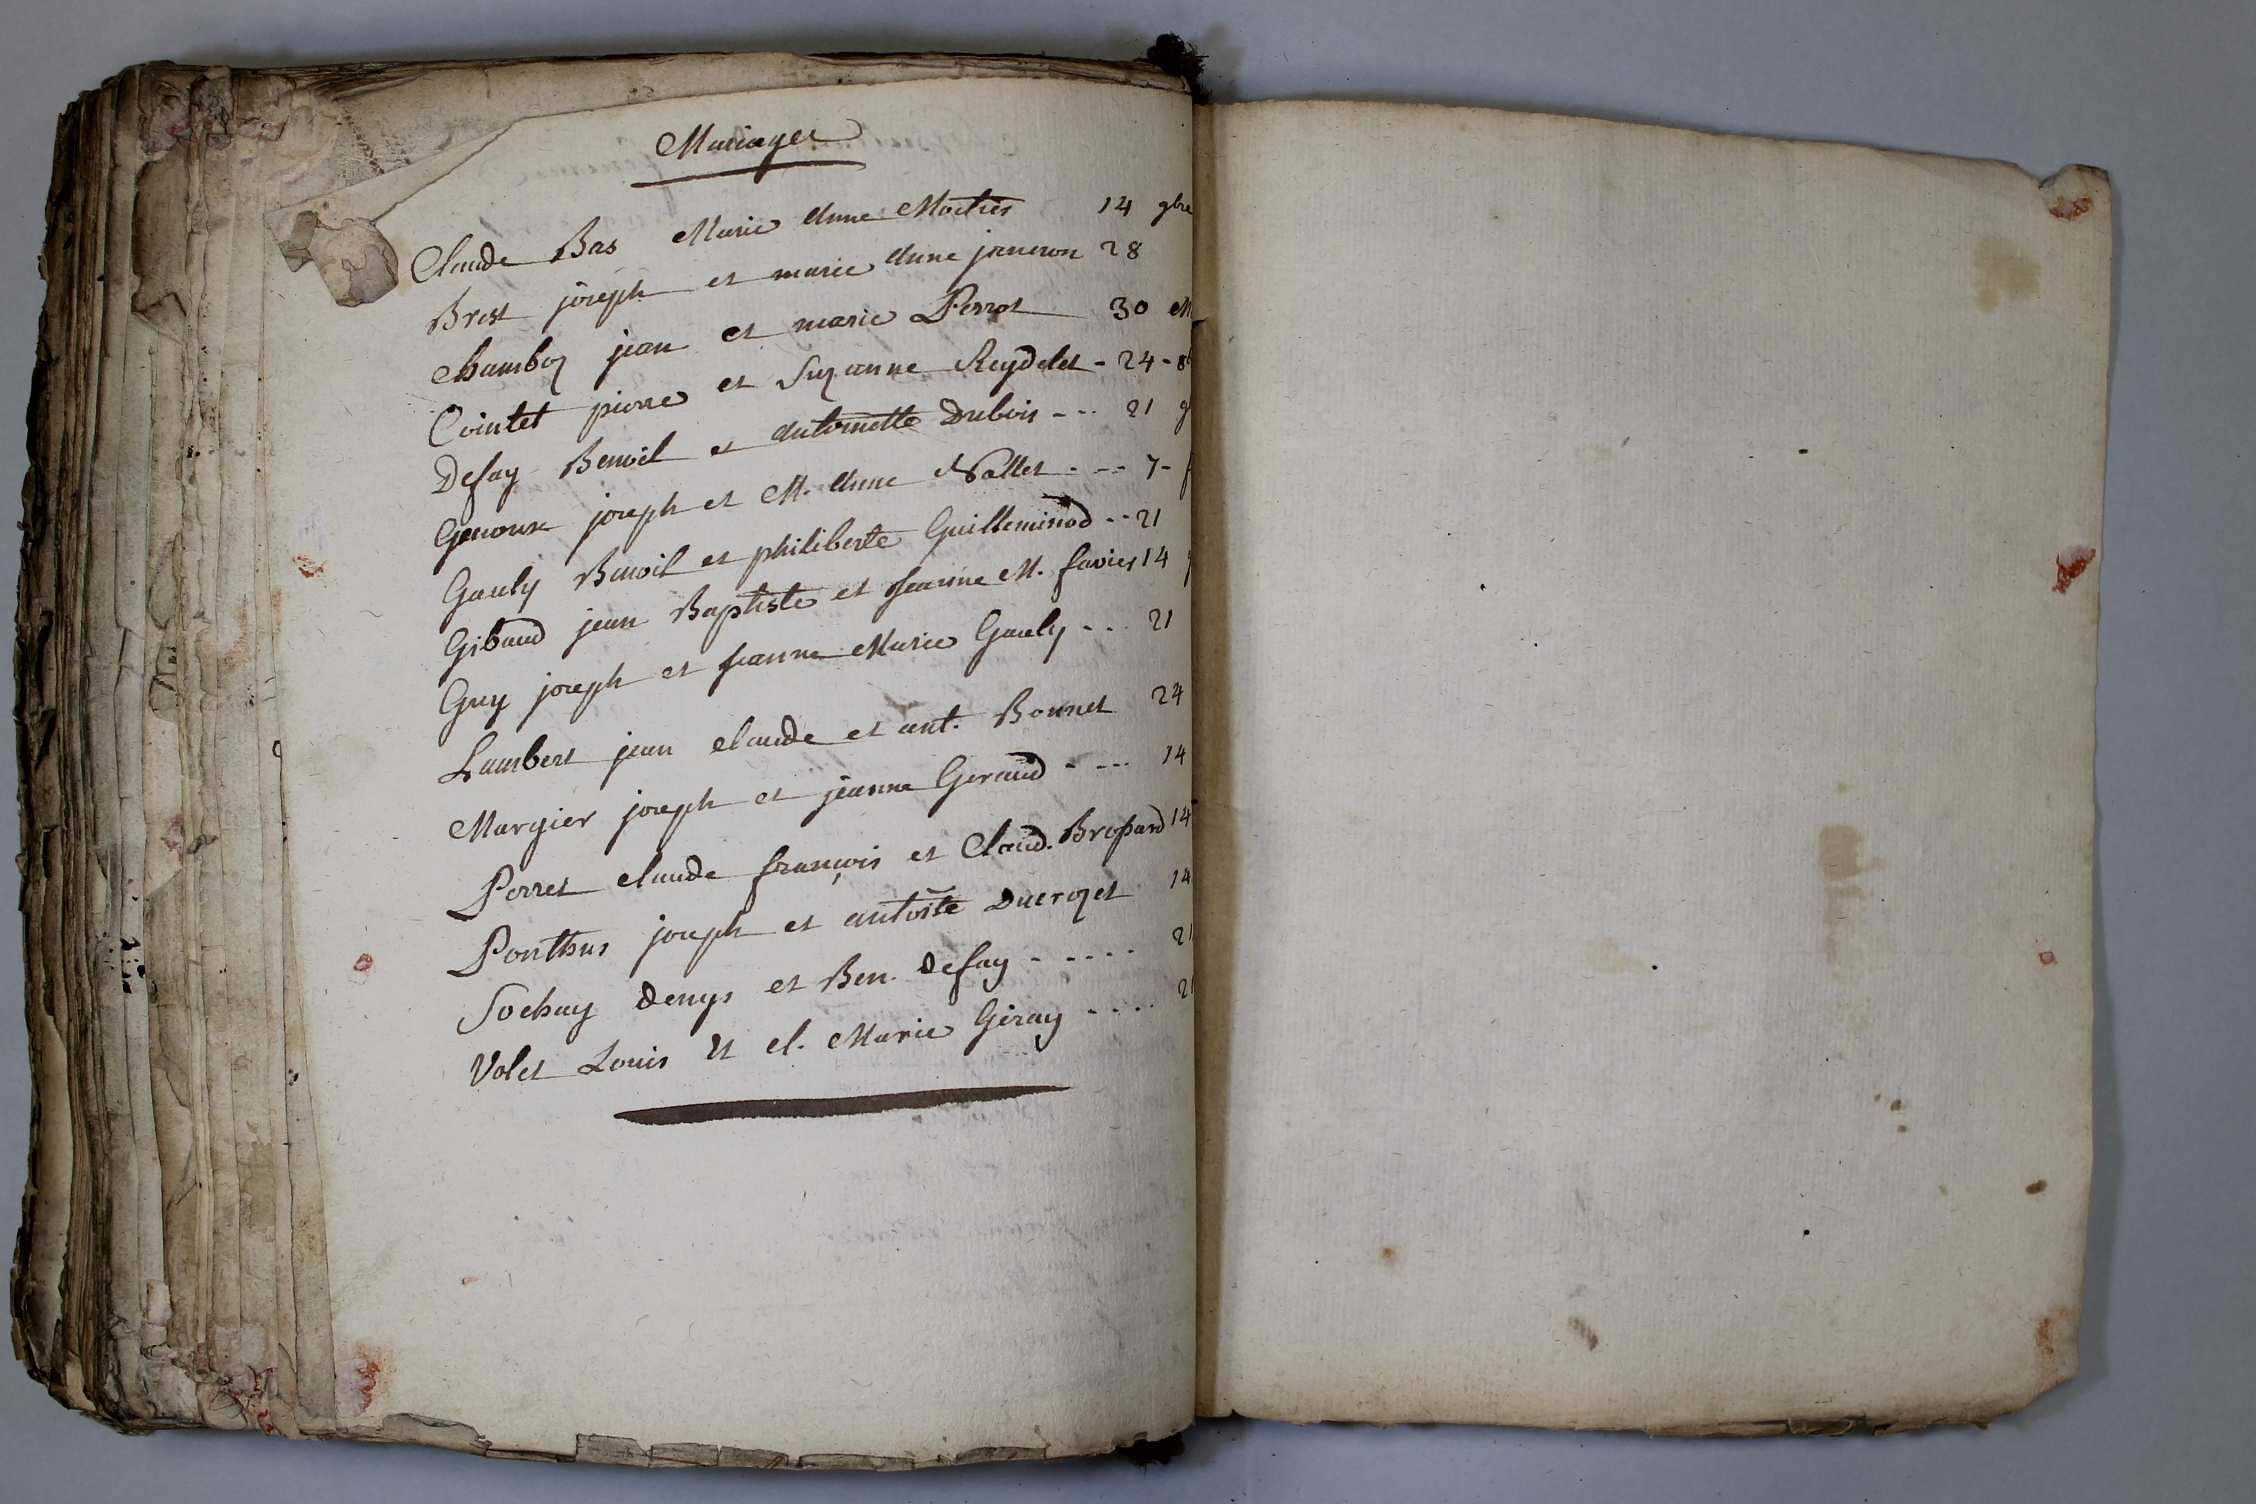 Mariages
Claude Bas Marie Anne 14 9bre
Brest joseph et marie Anne janeron 28
Chamboz jean et marie Perrot 30
Cointet pierre et Suzanne Reydelet - 24 -
Defay Benoit et Antoinette Dubois - - - 21
Genoux joseph et M. Anne Nallet - - - 7 -
Gauly Benoit et philiberte Guilleminod - - 21
Gibaud jean Baptiste et jeanne M. favier 14
Guy joseph et jeanne Marie Gauly - - - 21
Lambert jean claude et ant. Bonnet 24
Margier joseph et jeanne Geraud - - - - 14
Perret claude françois et Claud. Brossard 14
Ponthus joseph et antoite Ducrozet 14
Sochay Denys et Ben. Defay - - - - - 21
Volet Louis et cl. Marie Giray - - - - 21